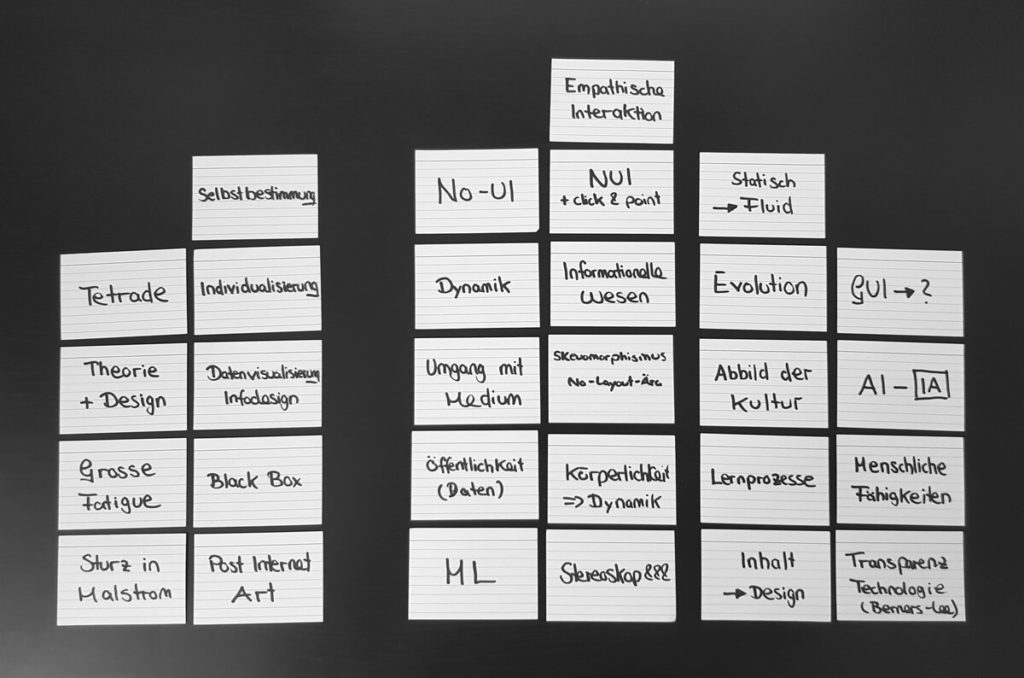 Empathische
Interaktion
Selbstbestimmung
No-UI
NUI
+ click & point
Statisch
→ Fluid
Tetrade
Individualisierung
Dynamik
Informationelle
Wesen
Evolution
GUI → ?
Theorie
+ Design
Datenvisualisierung
Infodesign
Umgang mit
Medium
Skeuomorphismus
No-Layout-Ära
Abbild der
Kultur
AI – IA
Grosse
Fatigue
Black Box
Öffentlichkeit
(Daten)
Körperlichkeit
=> Dynamik
Lernprozesse
Menschliche
Fähigkeiten
Sturz in
Malstrom
Post Internet
Art
ML
Stereoskop &&&
Inhalt
→ Design
Transparenz
Technologie
(Berners-Lee)